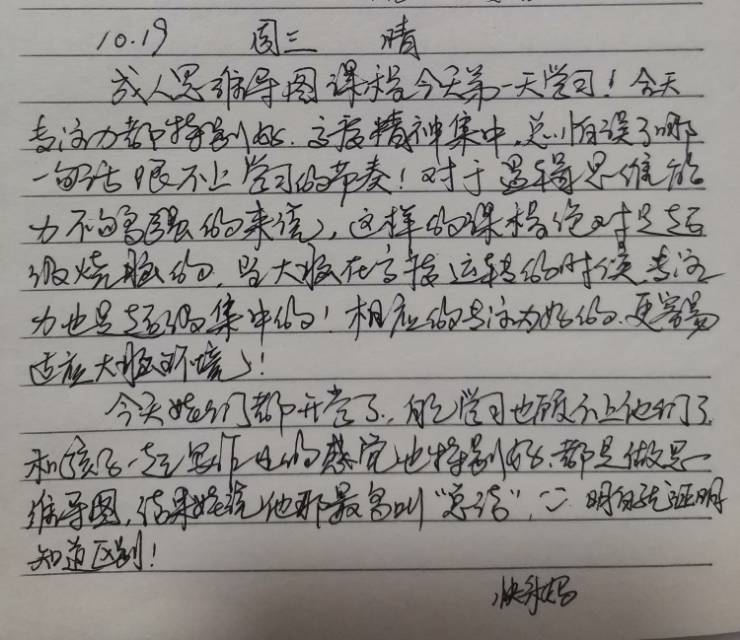 10.19 周三 晴
成人思维导图课程今天第一天学习！今天
专注力都特别好、高度精神集中，总怕误了哪
一句话跟不上学习的节奏！对于逻辑思维能
力不够高强的来说，这样的课程绝对是超
级烧脑的，当大脑在高度运转的时候专注
力也是超级集中的！相应的专注力好的、更容易
适应大脑环境！
今天娃们都开学了、自己学习也顾不上他们了
和孩子一起写作业的感觉也特别好、都是做思
维导图，结果娃说他那最多叫“总结”，明白就证明
知道区别！